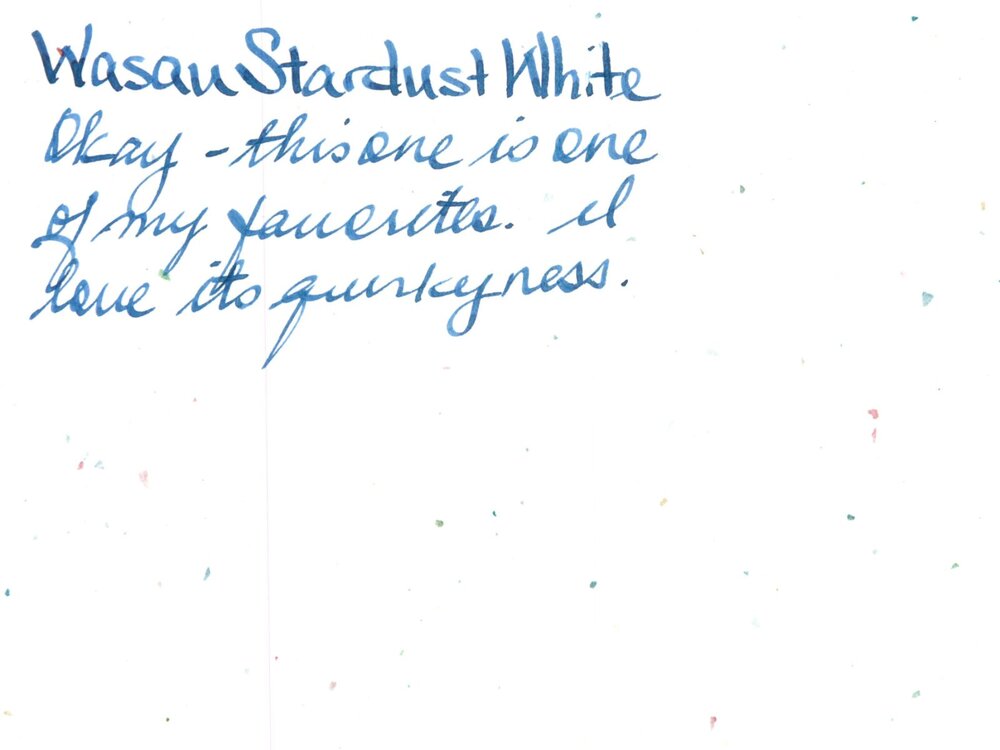 Wasau Stardust White
Okay - this one is one
of my favorites. I
love its quirkyness.